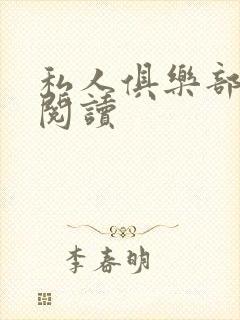 私人俱樂部
閱讀
李春明